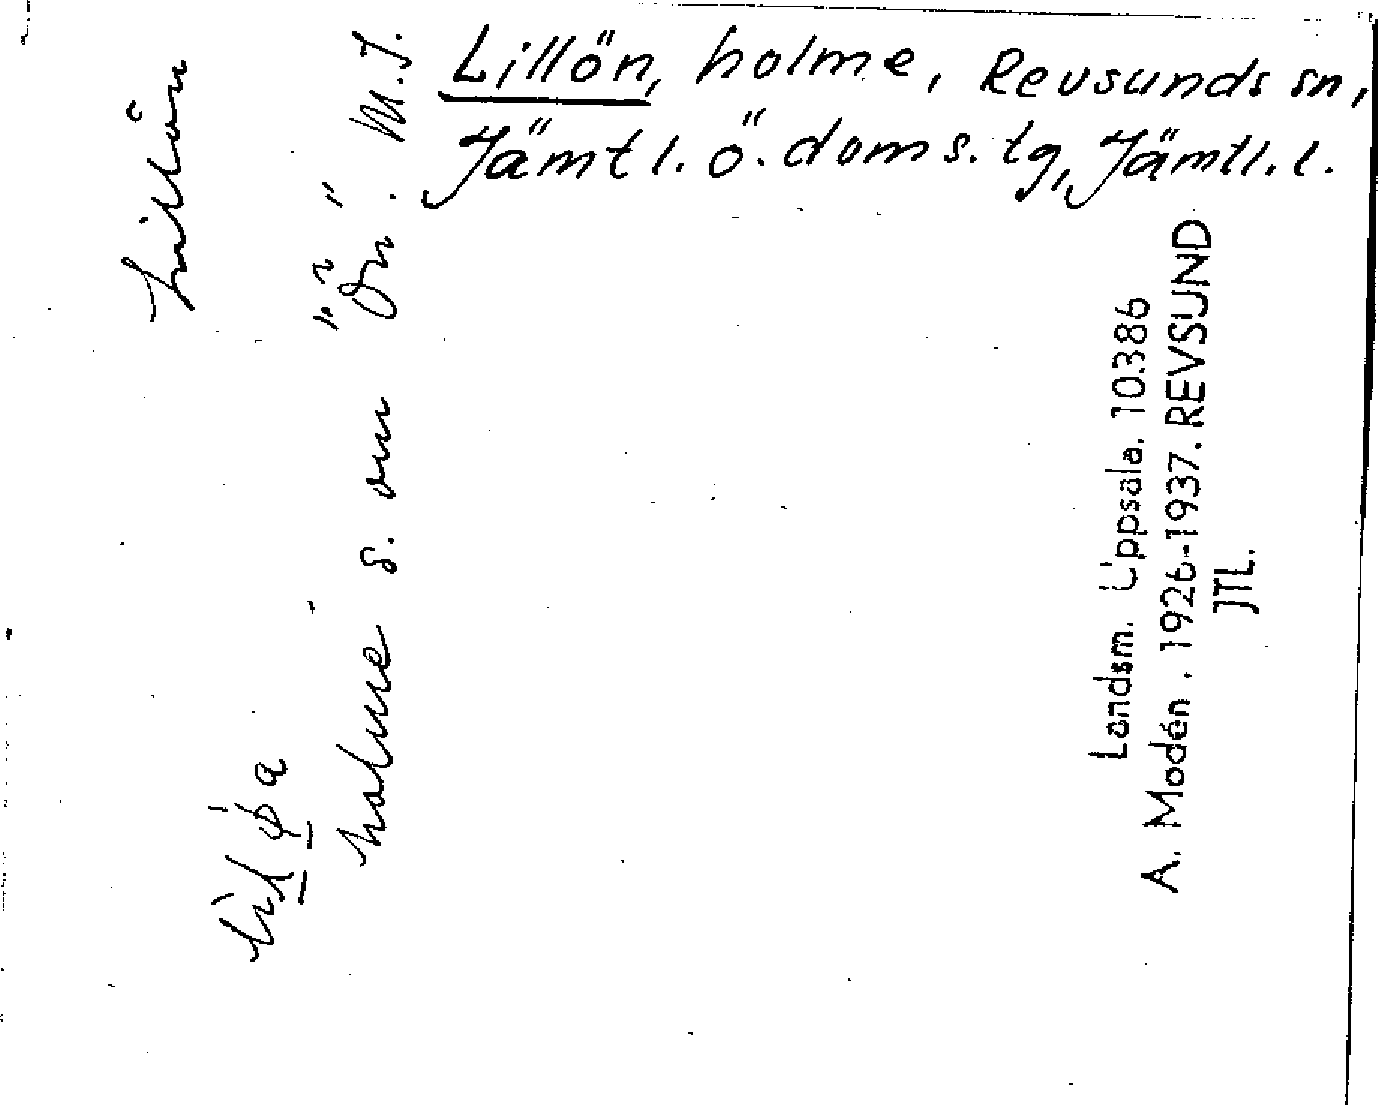 Lillön, holme, Revsunds sn,
Jämtl. ö. doms. tg, Jämtl. l.
Lillön
holme s. om "Ön". M.J.
Landsm. Uppsala. 10386
A. Modén. 1926-1937. REVSUND
JTL.